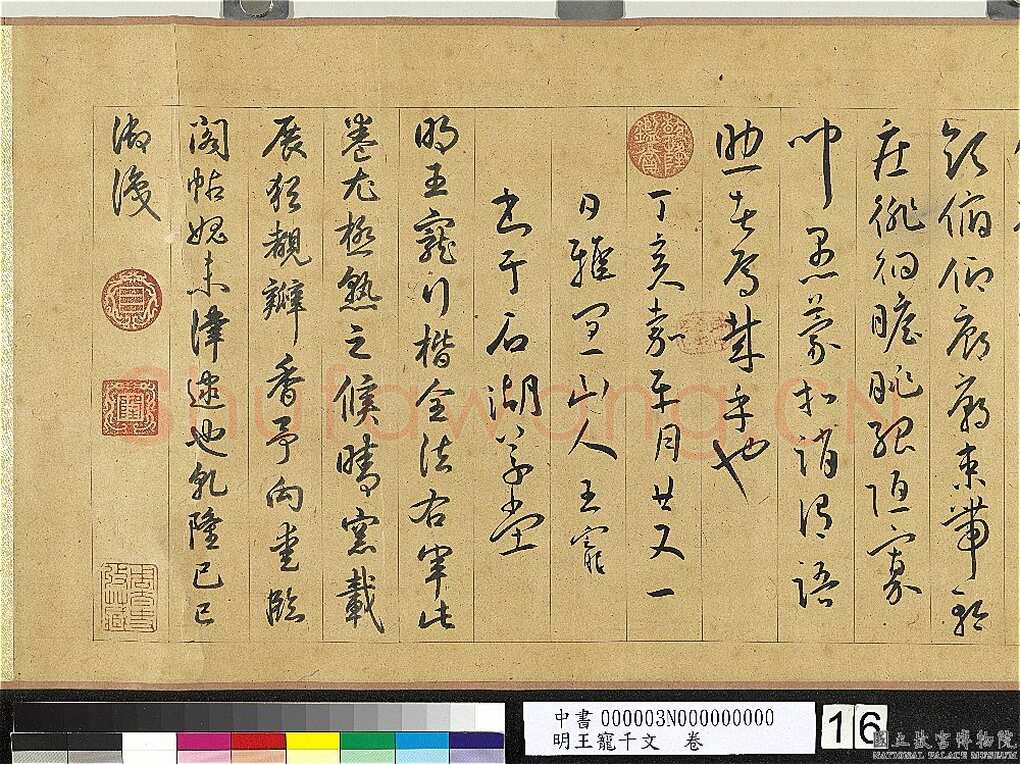 領俯仰廊廟束帶矜
莊徘徊瞻眺孤陋寡
聞愚蒙等誚謂語
助者焉哉乎也
丁亥嘉平月廿又一
日雅宜山人王寵
書于石湖草堂
明王寵行楷全法右軍此
卷尤極熟之候晴窗載
展猶覩瓣香予向愛臨
閣帖媿未津逮也乾隆己巳
御識
shufawang.cn
中書 000003N000000000
明王寵千文 卷
16
國立故宮博物院
NATIONAL PALACE MUSEUM